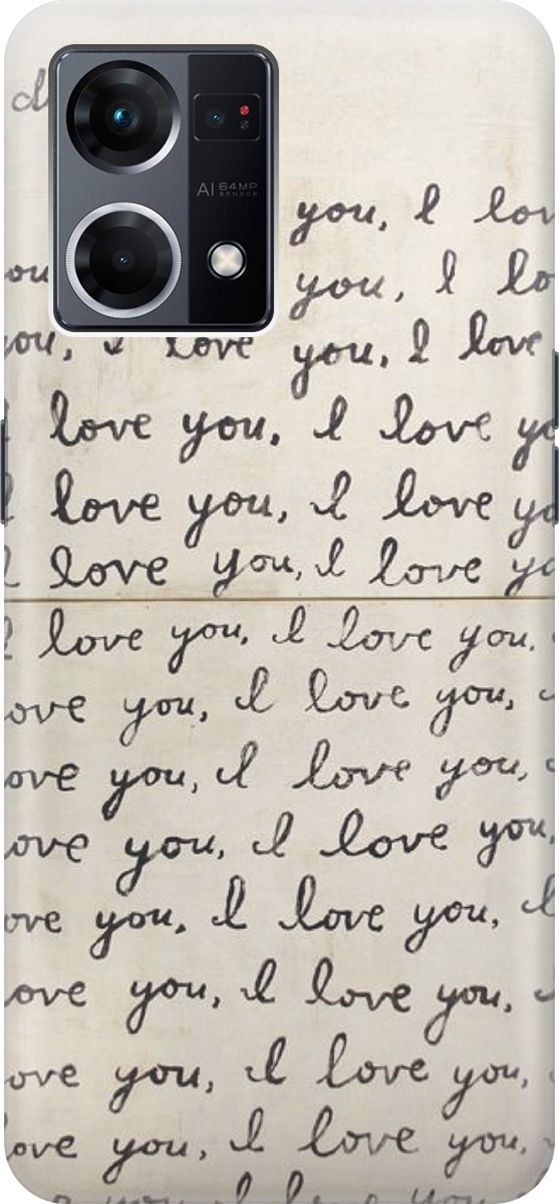 AI 64MP
SENSOR
you, I
you, I
I love you, I love
love you, I love
love you, I love
love you, I love
love you, I love you,
you, I love you,
you, I love you,
you, I love you,
you, I love you,
you, I love you,
you, I love you,
you, I love you,